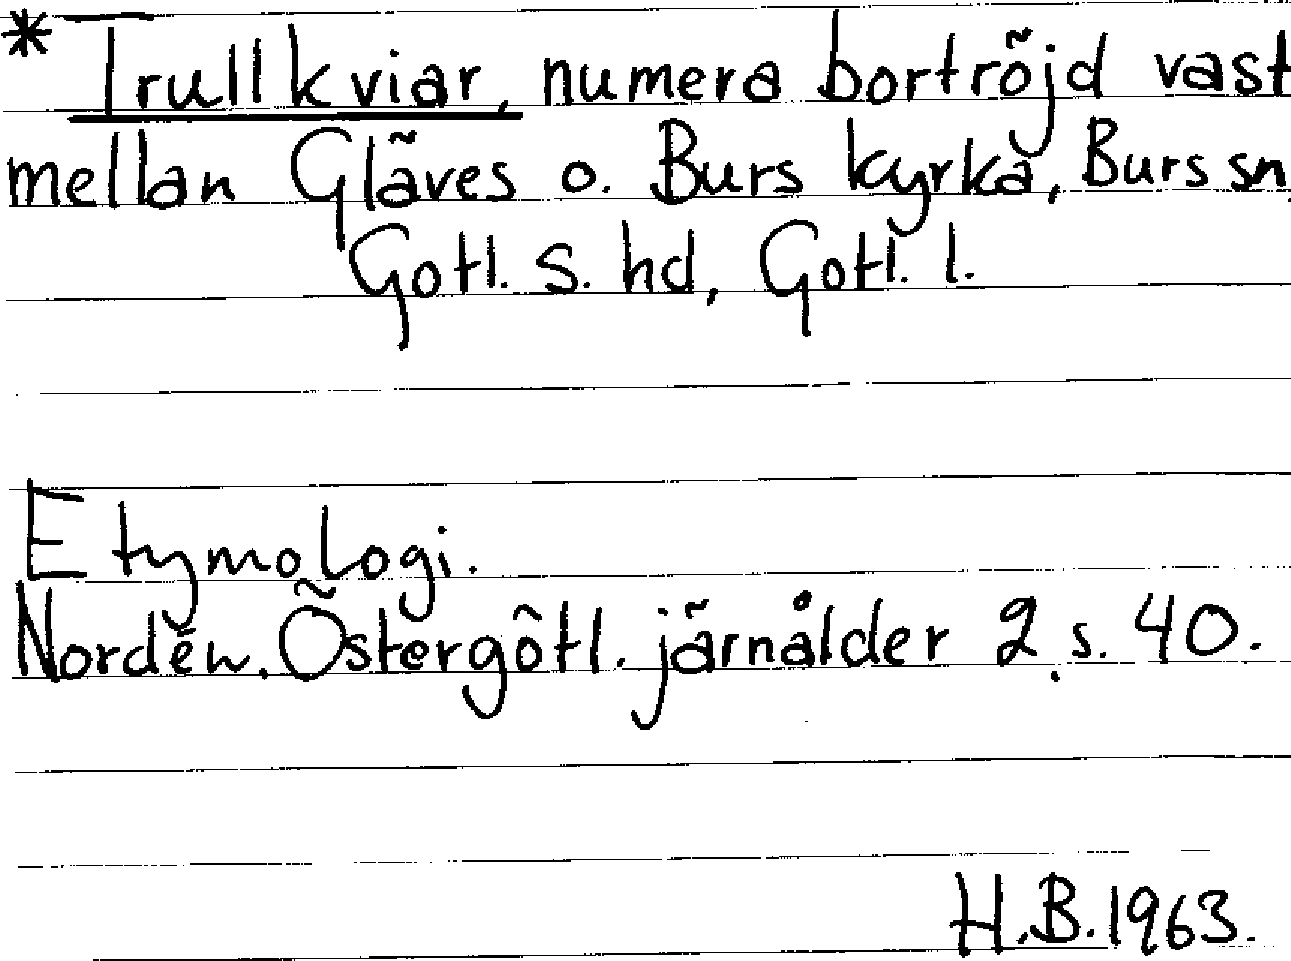 * Trullkviar, numera bortröjd vast
mellan Gläves o. Burs kyrka, Burs sn,
Gotl. S. hd, Gotl. l.
Etymologi.
Nordén. Östergötl. järnålder 2, s. 40.
H.B. 1963.